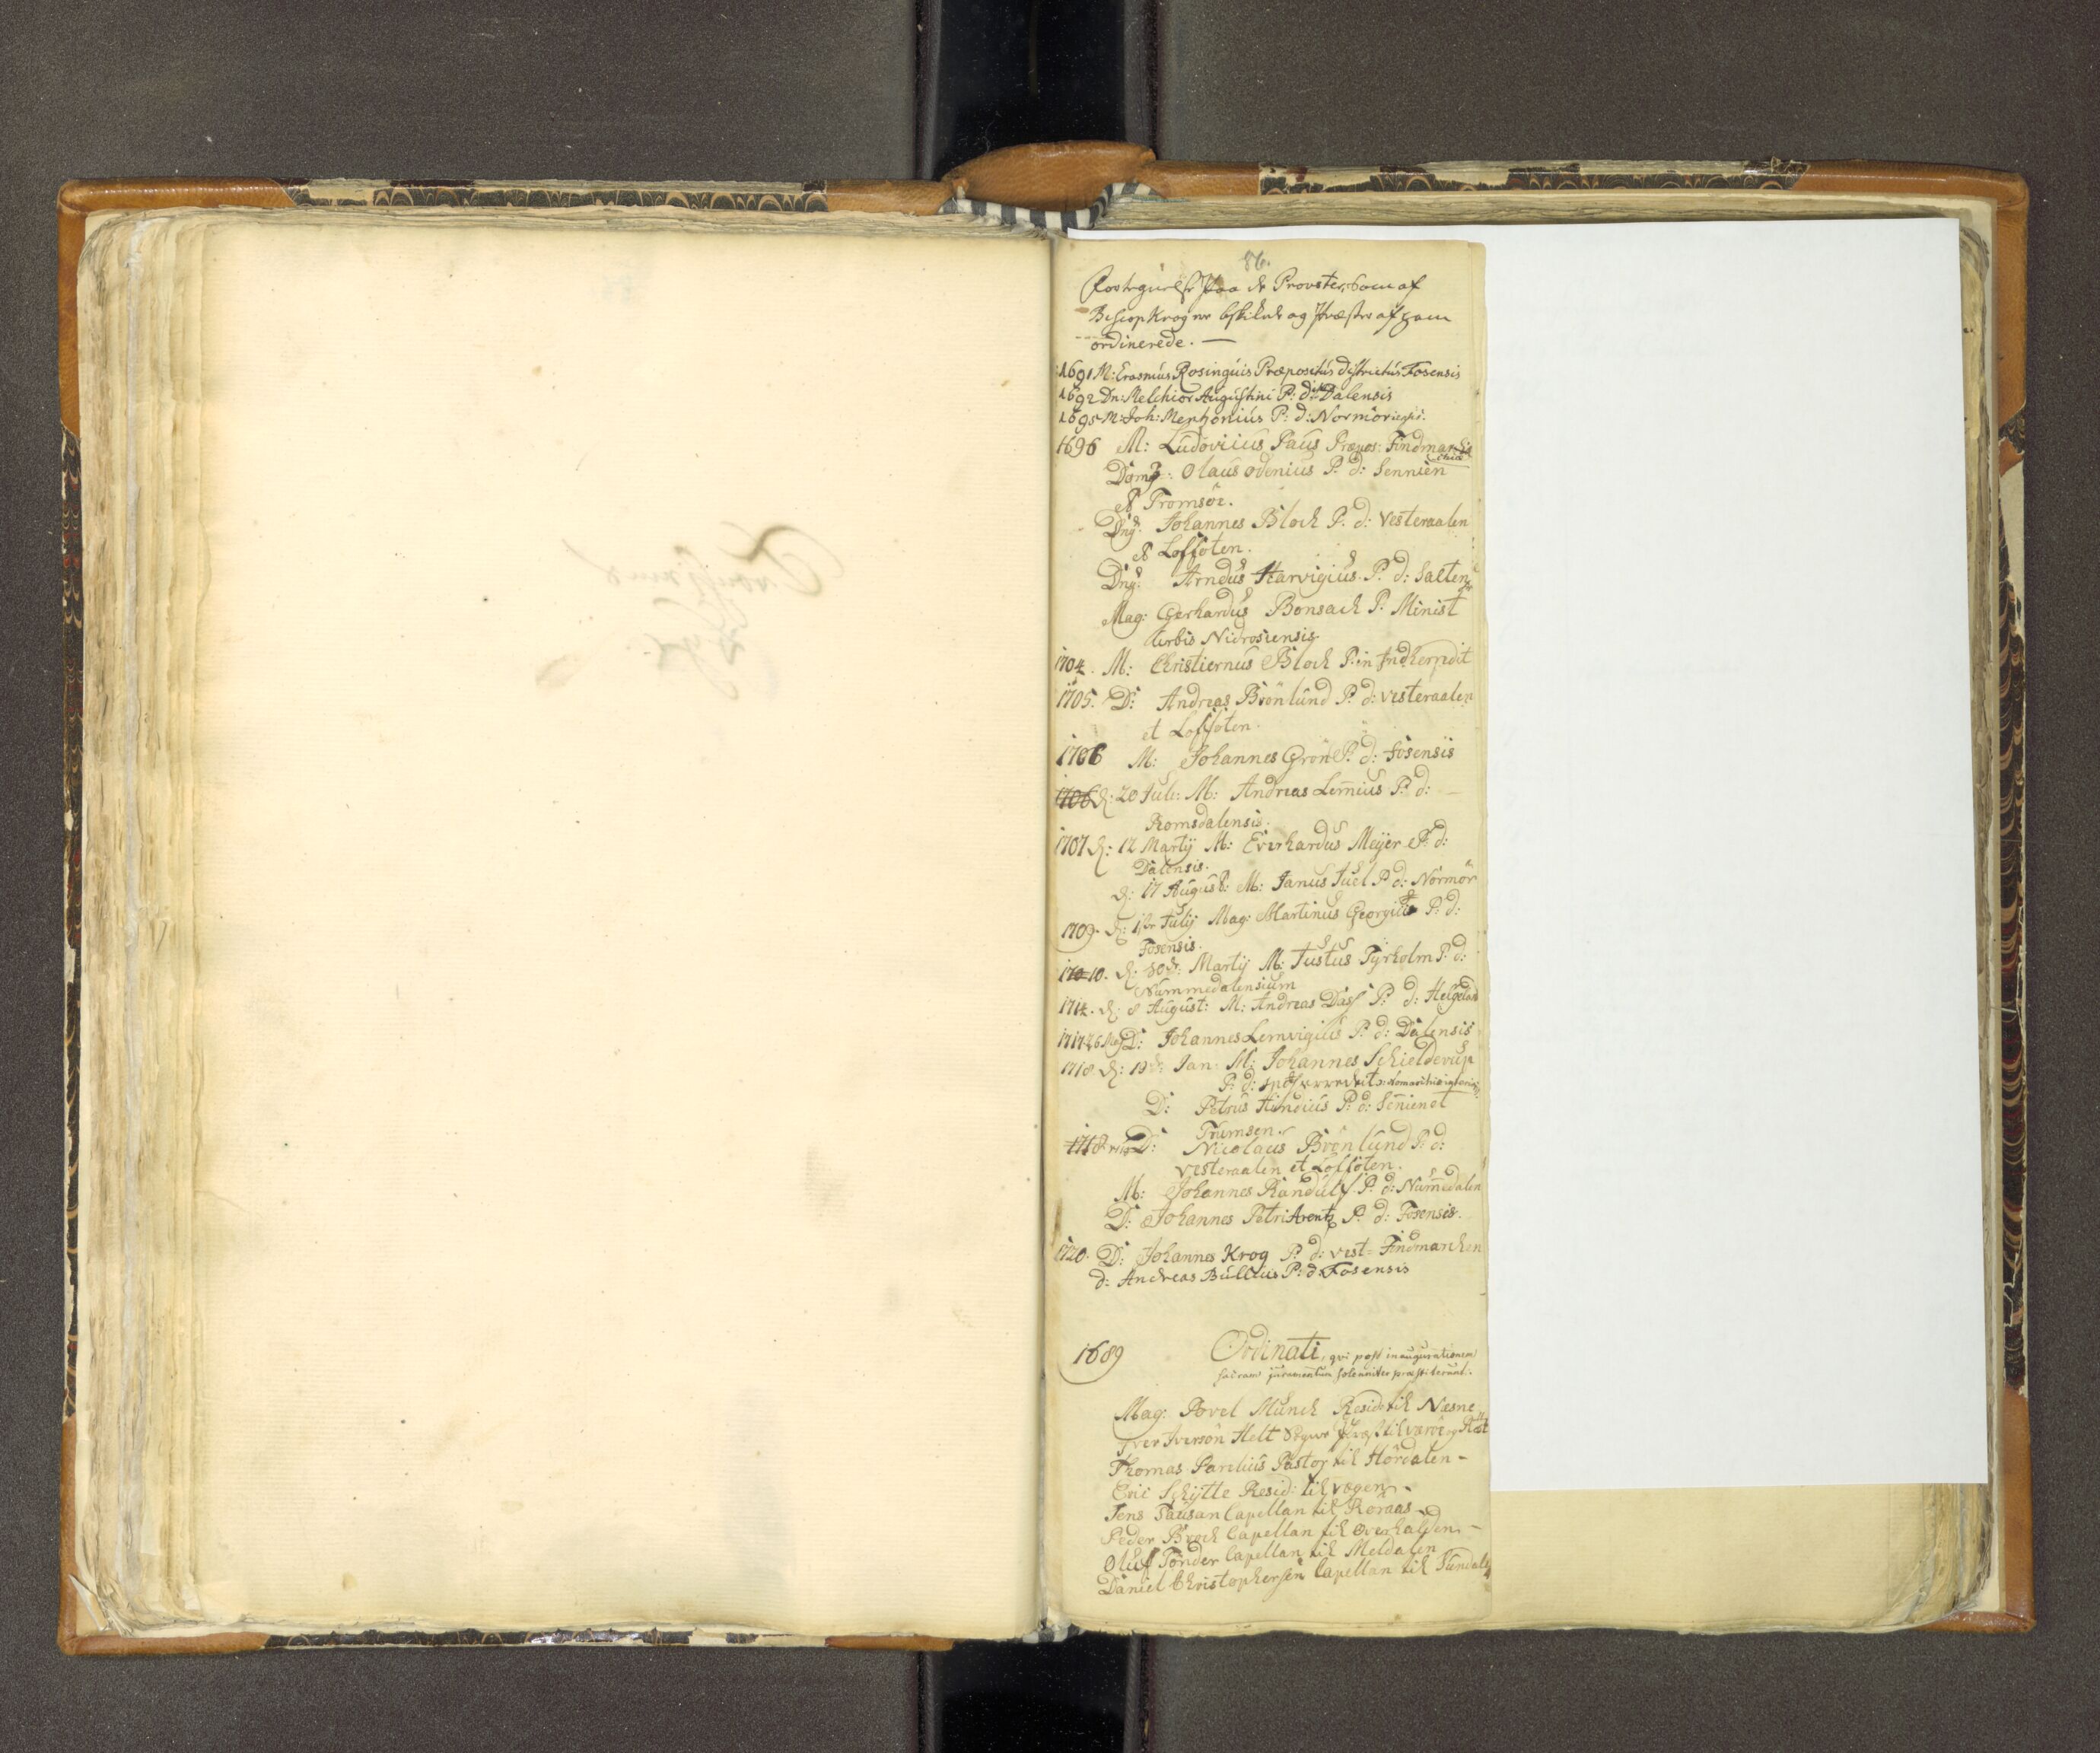 86.
paa de Provster, Som af
Biscop Krog er beskikede og Præster af ham
ordinerede. —
1691 M: Erasmus Rosingius Præpositus districtus Fosensis
1692 Dn: Melchior Augustini P: d: Dalensis
1695 M: Joh: P: d: Normör
1696 M: Ludovicus Paus Præpos: Findmarchiæ
Olaus Odenius P: d: Sennien
et Tromsöe.
Johannes Bloch P: d: Vesteraalen
et Loffoten.
Arndus Harvigius P: d: Salten
Mag: Gerhardus Bonsach P: Minist
Urbis Nidrosiensis
1704. M: Christiernus Bloch P: in
1705. D: Andreas Brönlund P: d: Vesteraalen
et Loffoten.
1706 M: Johannes Grön P: d: Fosensis
1706 d: 20 Juli: M: Andreas Lemius P: d:
Romsdalensis.
1707 d: 12 Martij M: Everhardus Meyer P: d:
Dalensis.
d: 17 August: M: Janus Juel P: d: Normör
1709. d: Julij Mag: Martinus Georgii P: d:
Fosensis.
1710. d: Martij M: Justus Tyrholm P: d:
Nummedalensium
1714. d: 8 August: M: Andreas Dass P: d: Helgeland
1717 26 Maj D: Johannes Lemvigius P: d: Dalensis
1718 d: 19 Jan: M: Johannes Schielderup
P: d:
D: Petrus P: d: Senien et
Trumsen.
1718 D: Nicolaus Brönlund P: d:
Vesteraalen et Loffoten.
M: Johannes Randulf P: d: Nummedalen
D: Johannes Petri Arentz P: d: Fosensis.
1720. D: Johannes Krog P: d: vest-Findmarchen
d: Andreas Bullius P: d: Fosensis
1689 Ordinati, qvi post inaugurationem
sacram juramentum solenniter præstiterunt.
Mag: Povel Munch Resid: til Næsne
Iver Iverson Helt Sogne Præst til Værøe og Røst
Thomas Parelius Pastor til Hördalen -
Eric Schytte Resid: til Vægen -
Jens Tausan Capellan til Röraas -
Peder Broch Capellan til Overhalden -
Oluf Tönder Capellan til Meldalen
Daniel Christophersen Capellan til Sundal